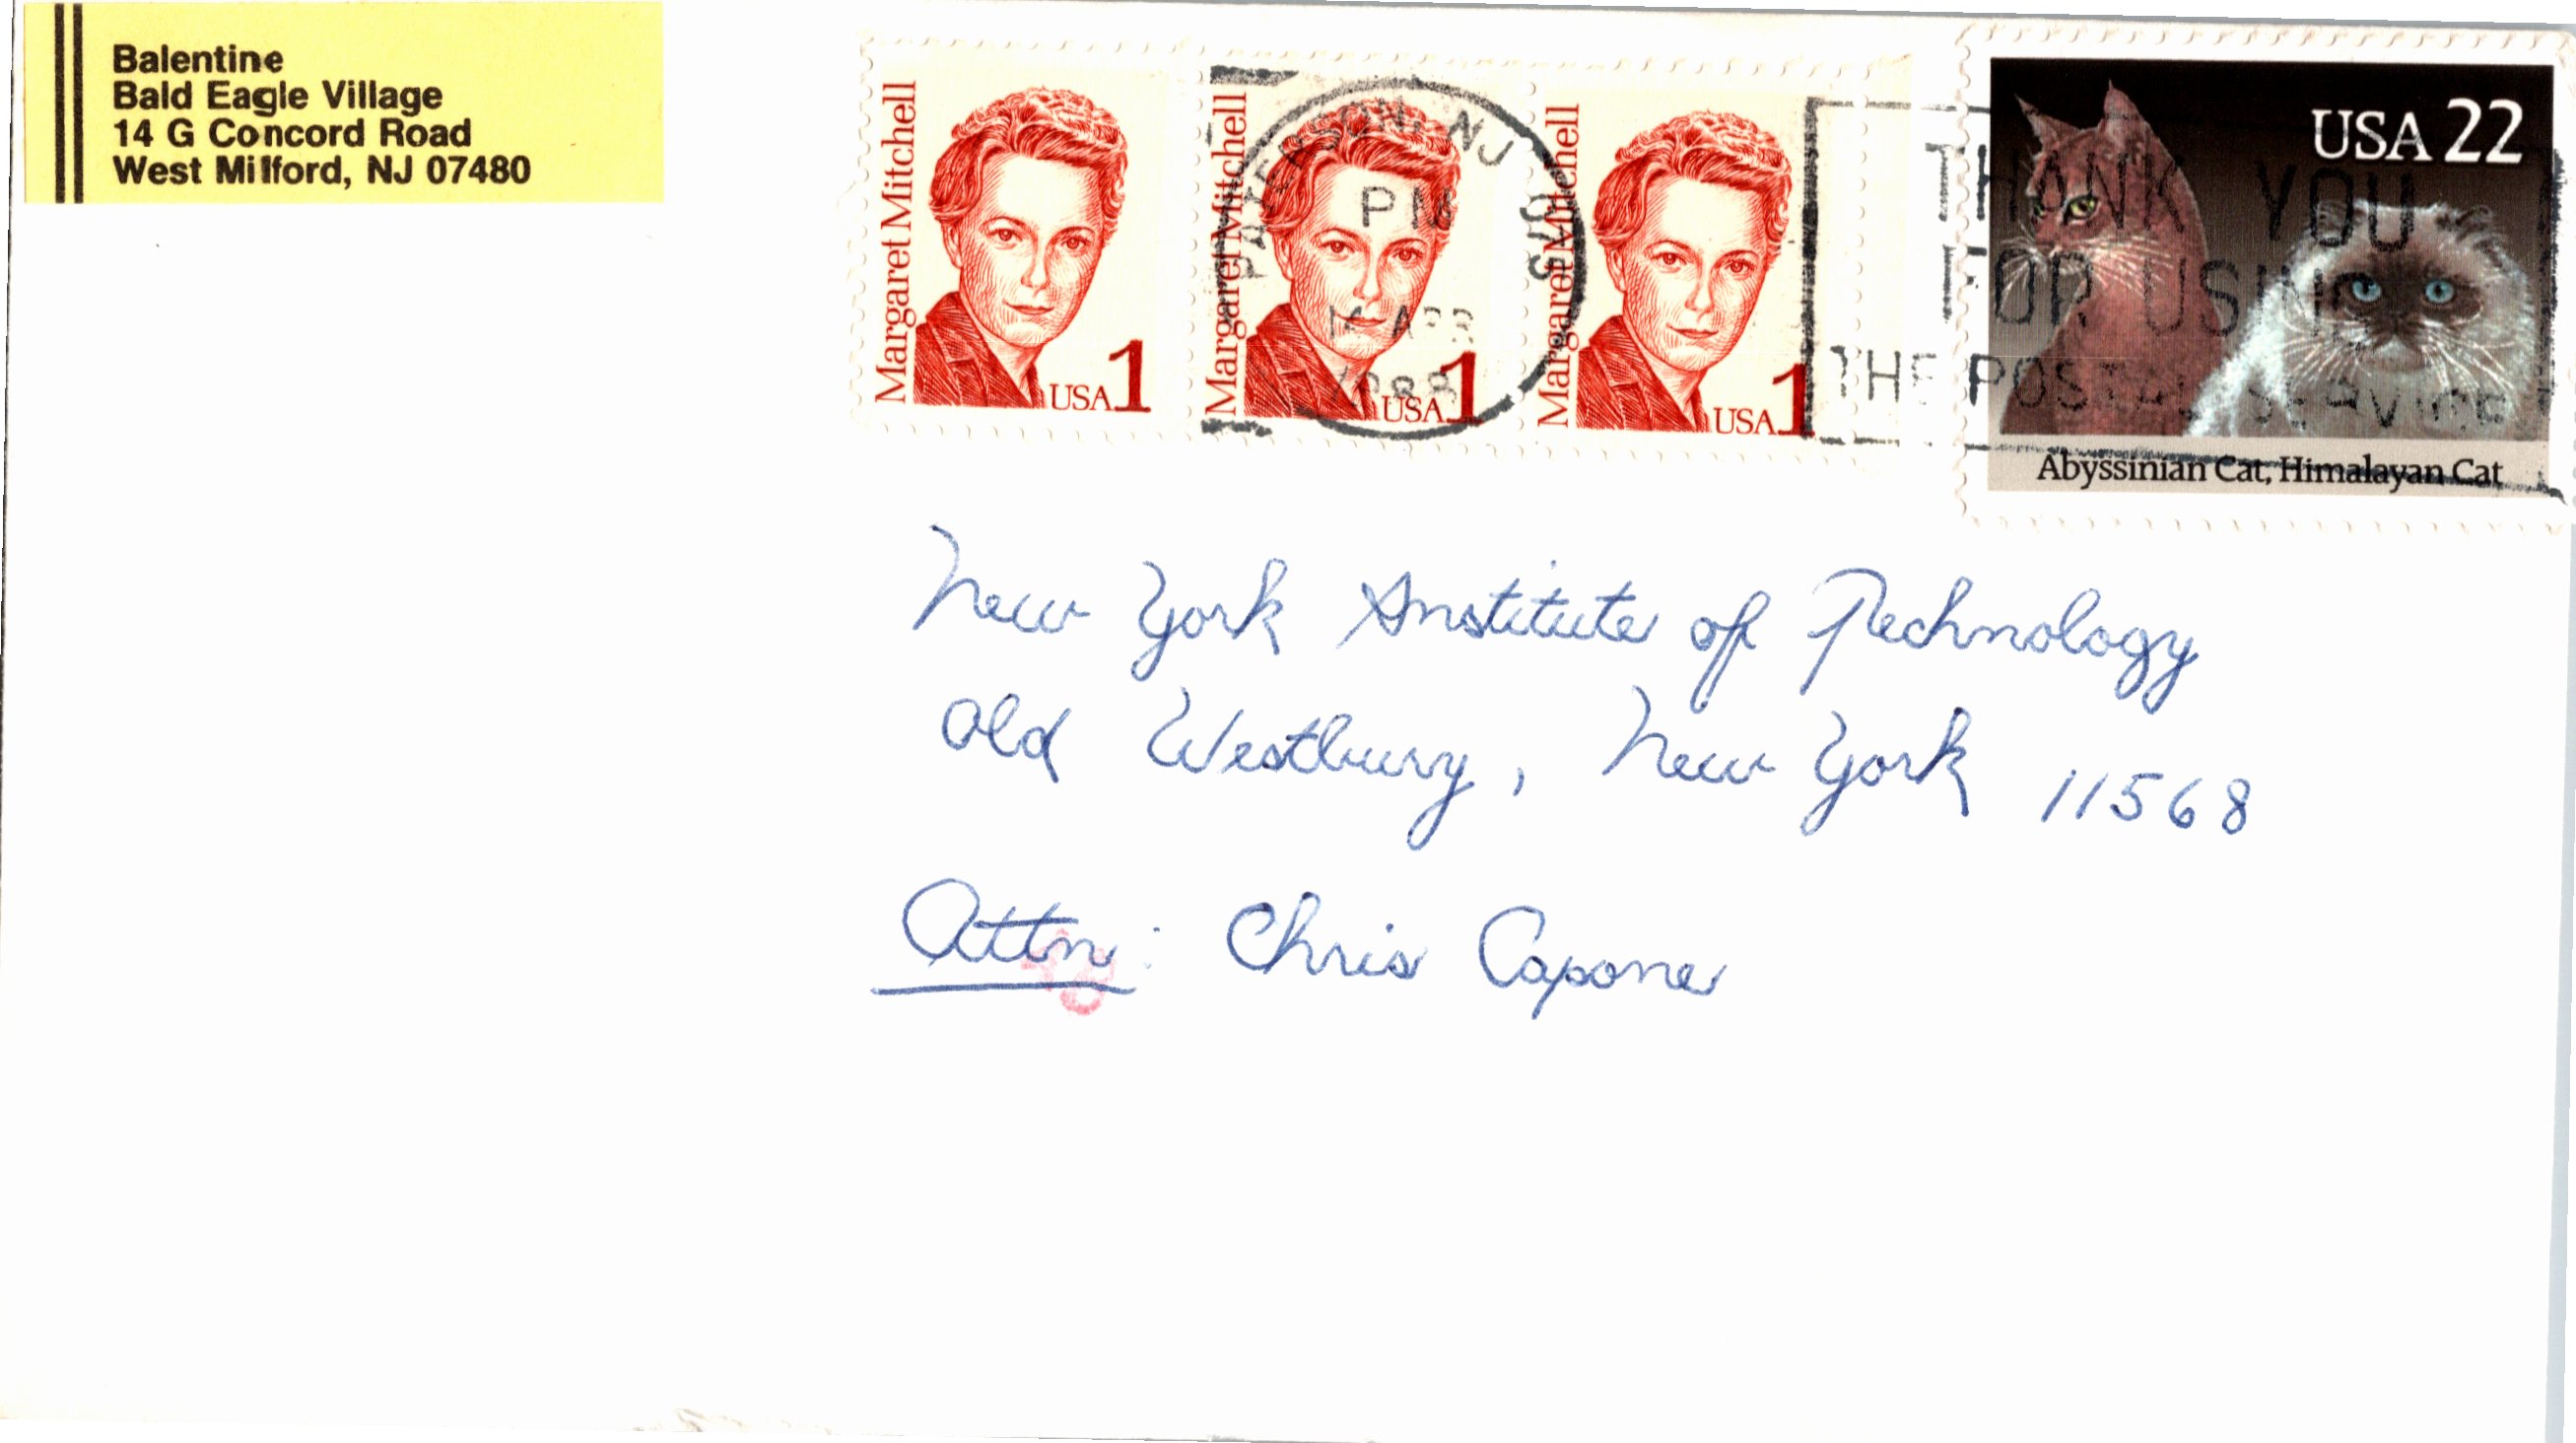 Balentine
Bald Eagle Village
14 G Concord Road
West Milford, NJ 07480
Margaret Mitchell
USA 1
Margaret Mitchell
USA 1
Margaret Mitchell
USA 1
PATERSON, NJ 075
PM
APR
1988
THANK YOU
FOR USING
THE POSTAL SERVICE
USA 22
Abyssinian Cat, Himalayan Cat
New York Institute of Technology
Old Westbury, New York 11568
Attn: Chris Capone